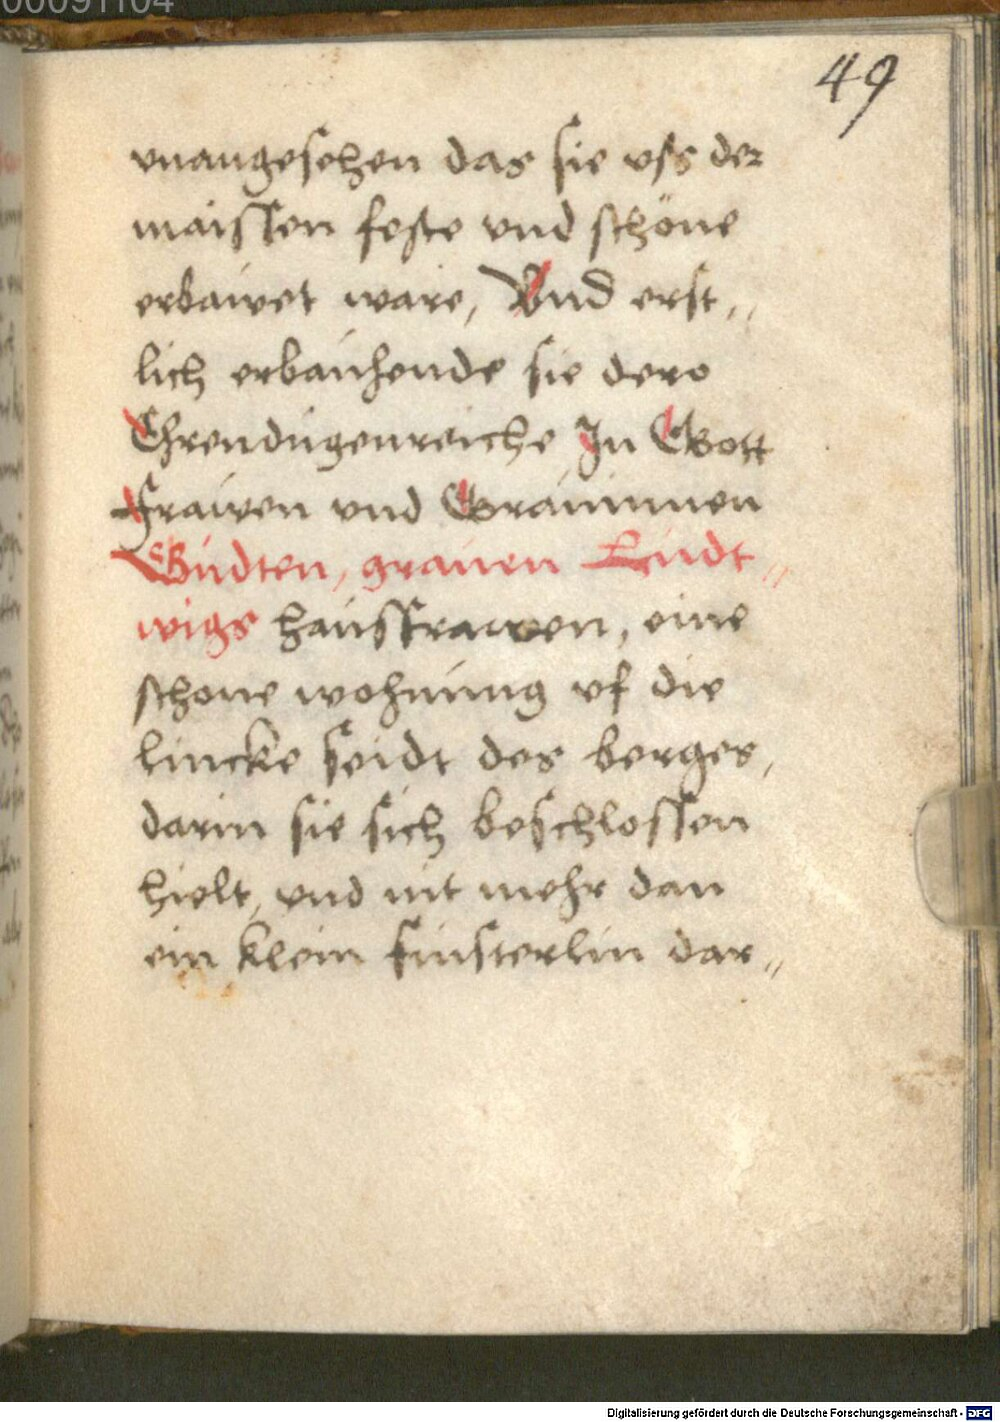 00091104
49
vnangesehen das sie vss der
maissen feste vnd schöne
erbawet ware, Vnd erst,,
lich erbauhende sie dero
Ehrendugenreiche In Gott
Frawen vnd Gräuinnen
Gudten, grauen Ludt,,
wigs haussfrawen, eine
schone wohnung vf die
lincke seidt des berges,
darin sie sich beschlossen
hielt, vnd nit mehr dan
ein klein finsterlin dar,,
Digitalisierung gefördert durch die Deutsche Forschungsgemeinschaft - DFG